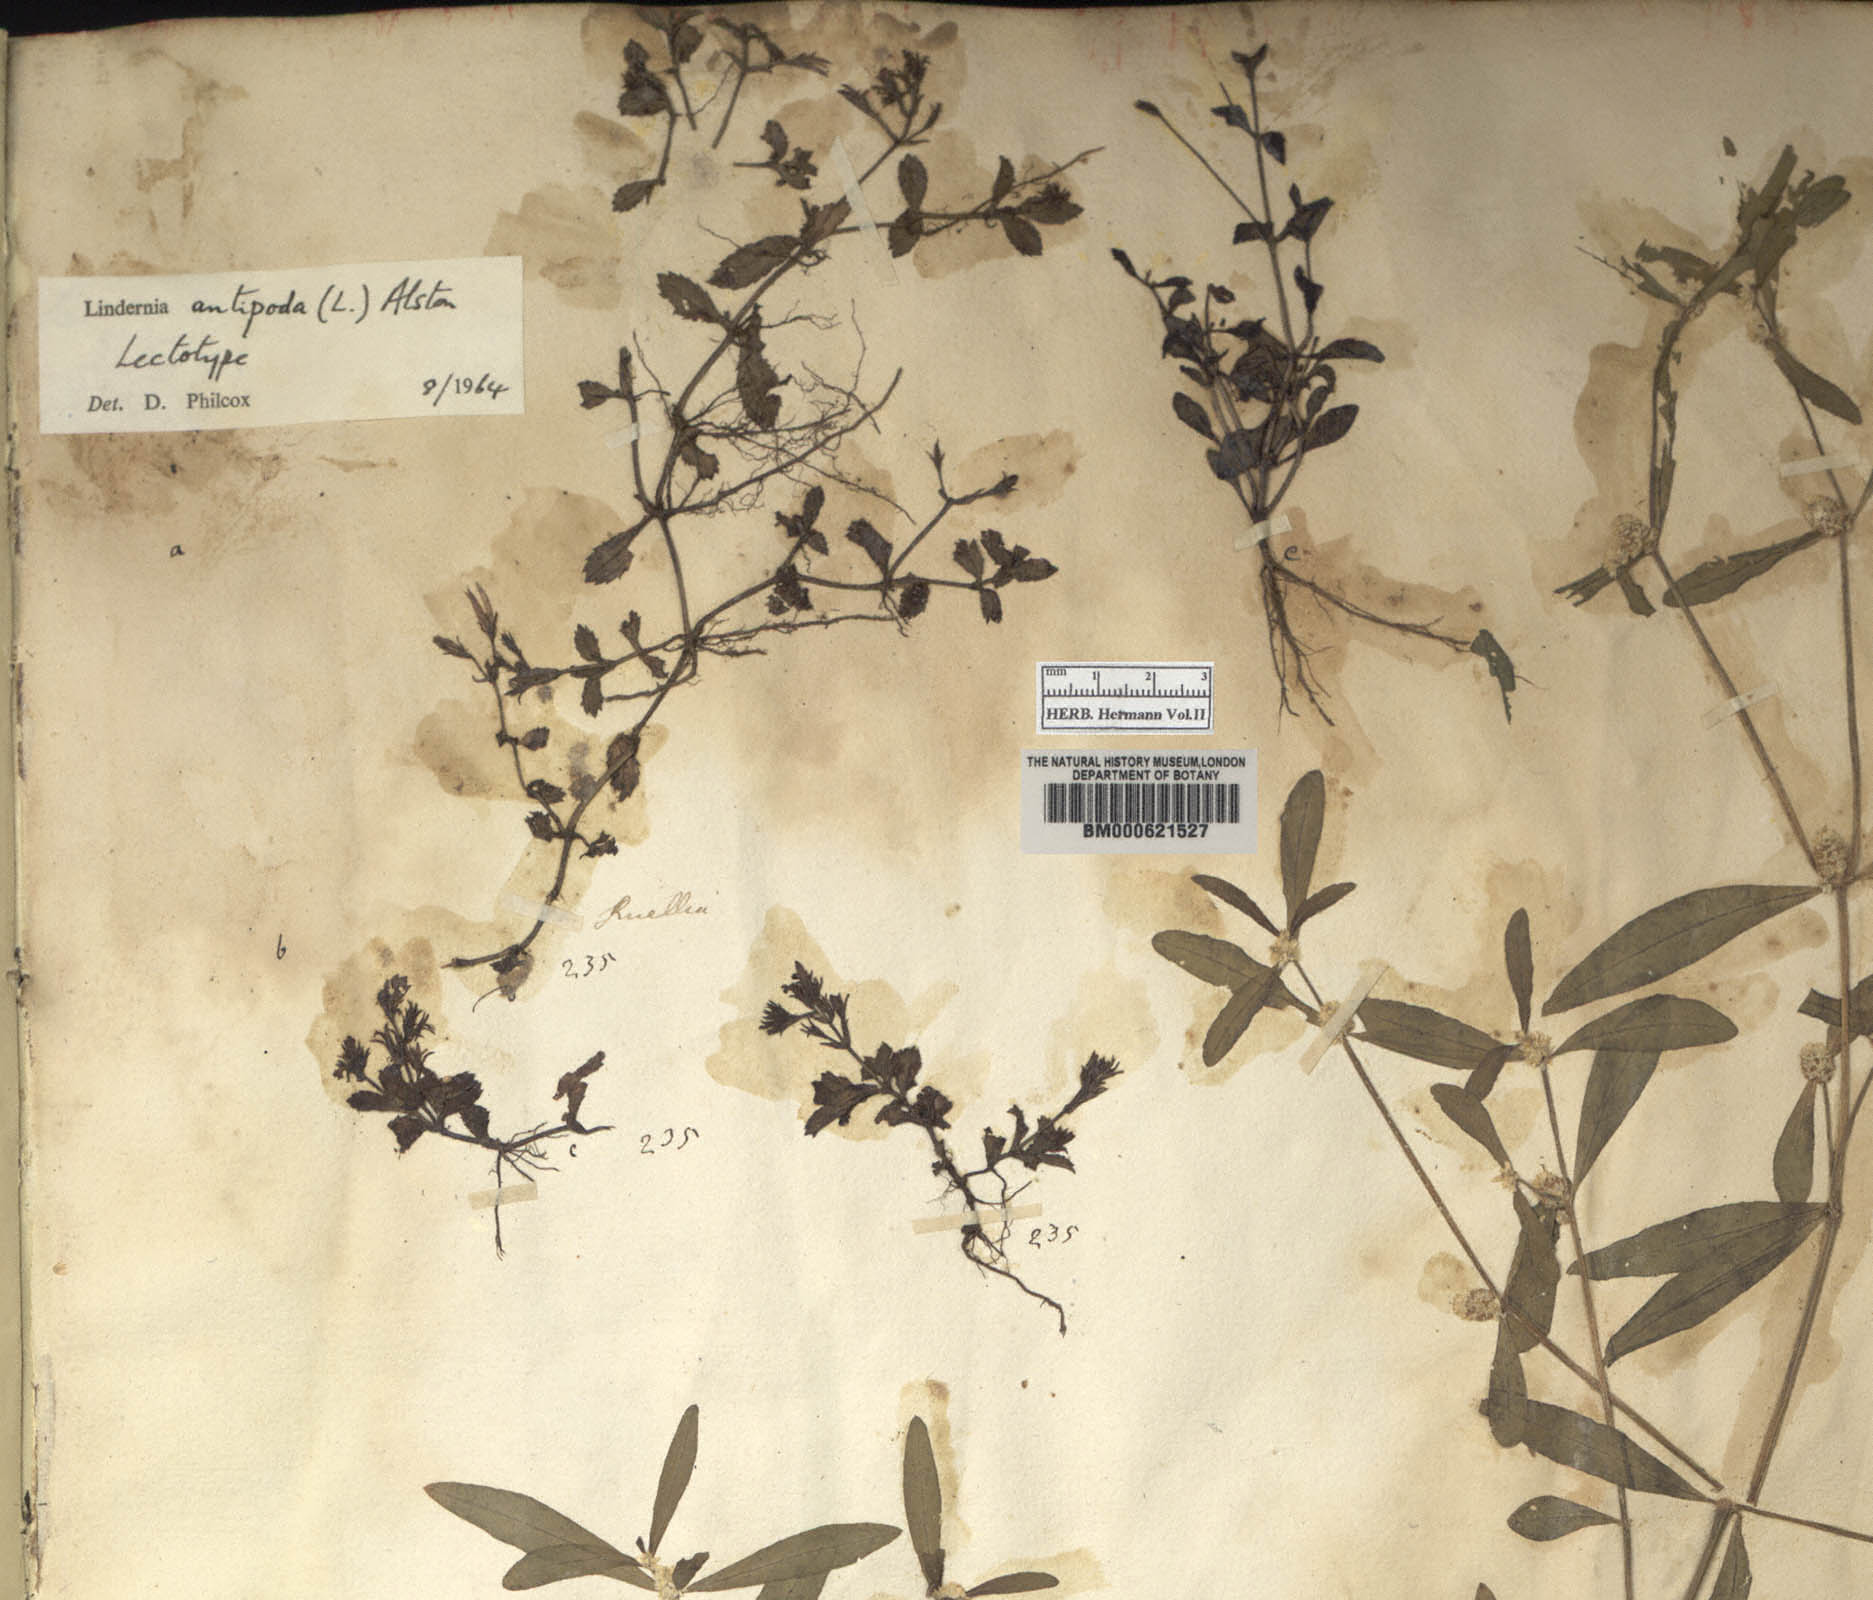 Lindernia antipoda (L.) Alston
Lectotype
Det. D. Philcox 8/1964
a
e
mm 1 2 3
HERB. Hermann Vol.II
THE NATURAL HISTORY MUSEUM, LONDON
DEPARTMENT OF BOTANY
BM000621527
Ruellia
b
235
c
235
235